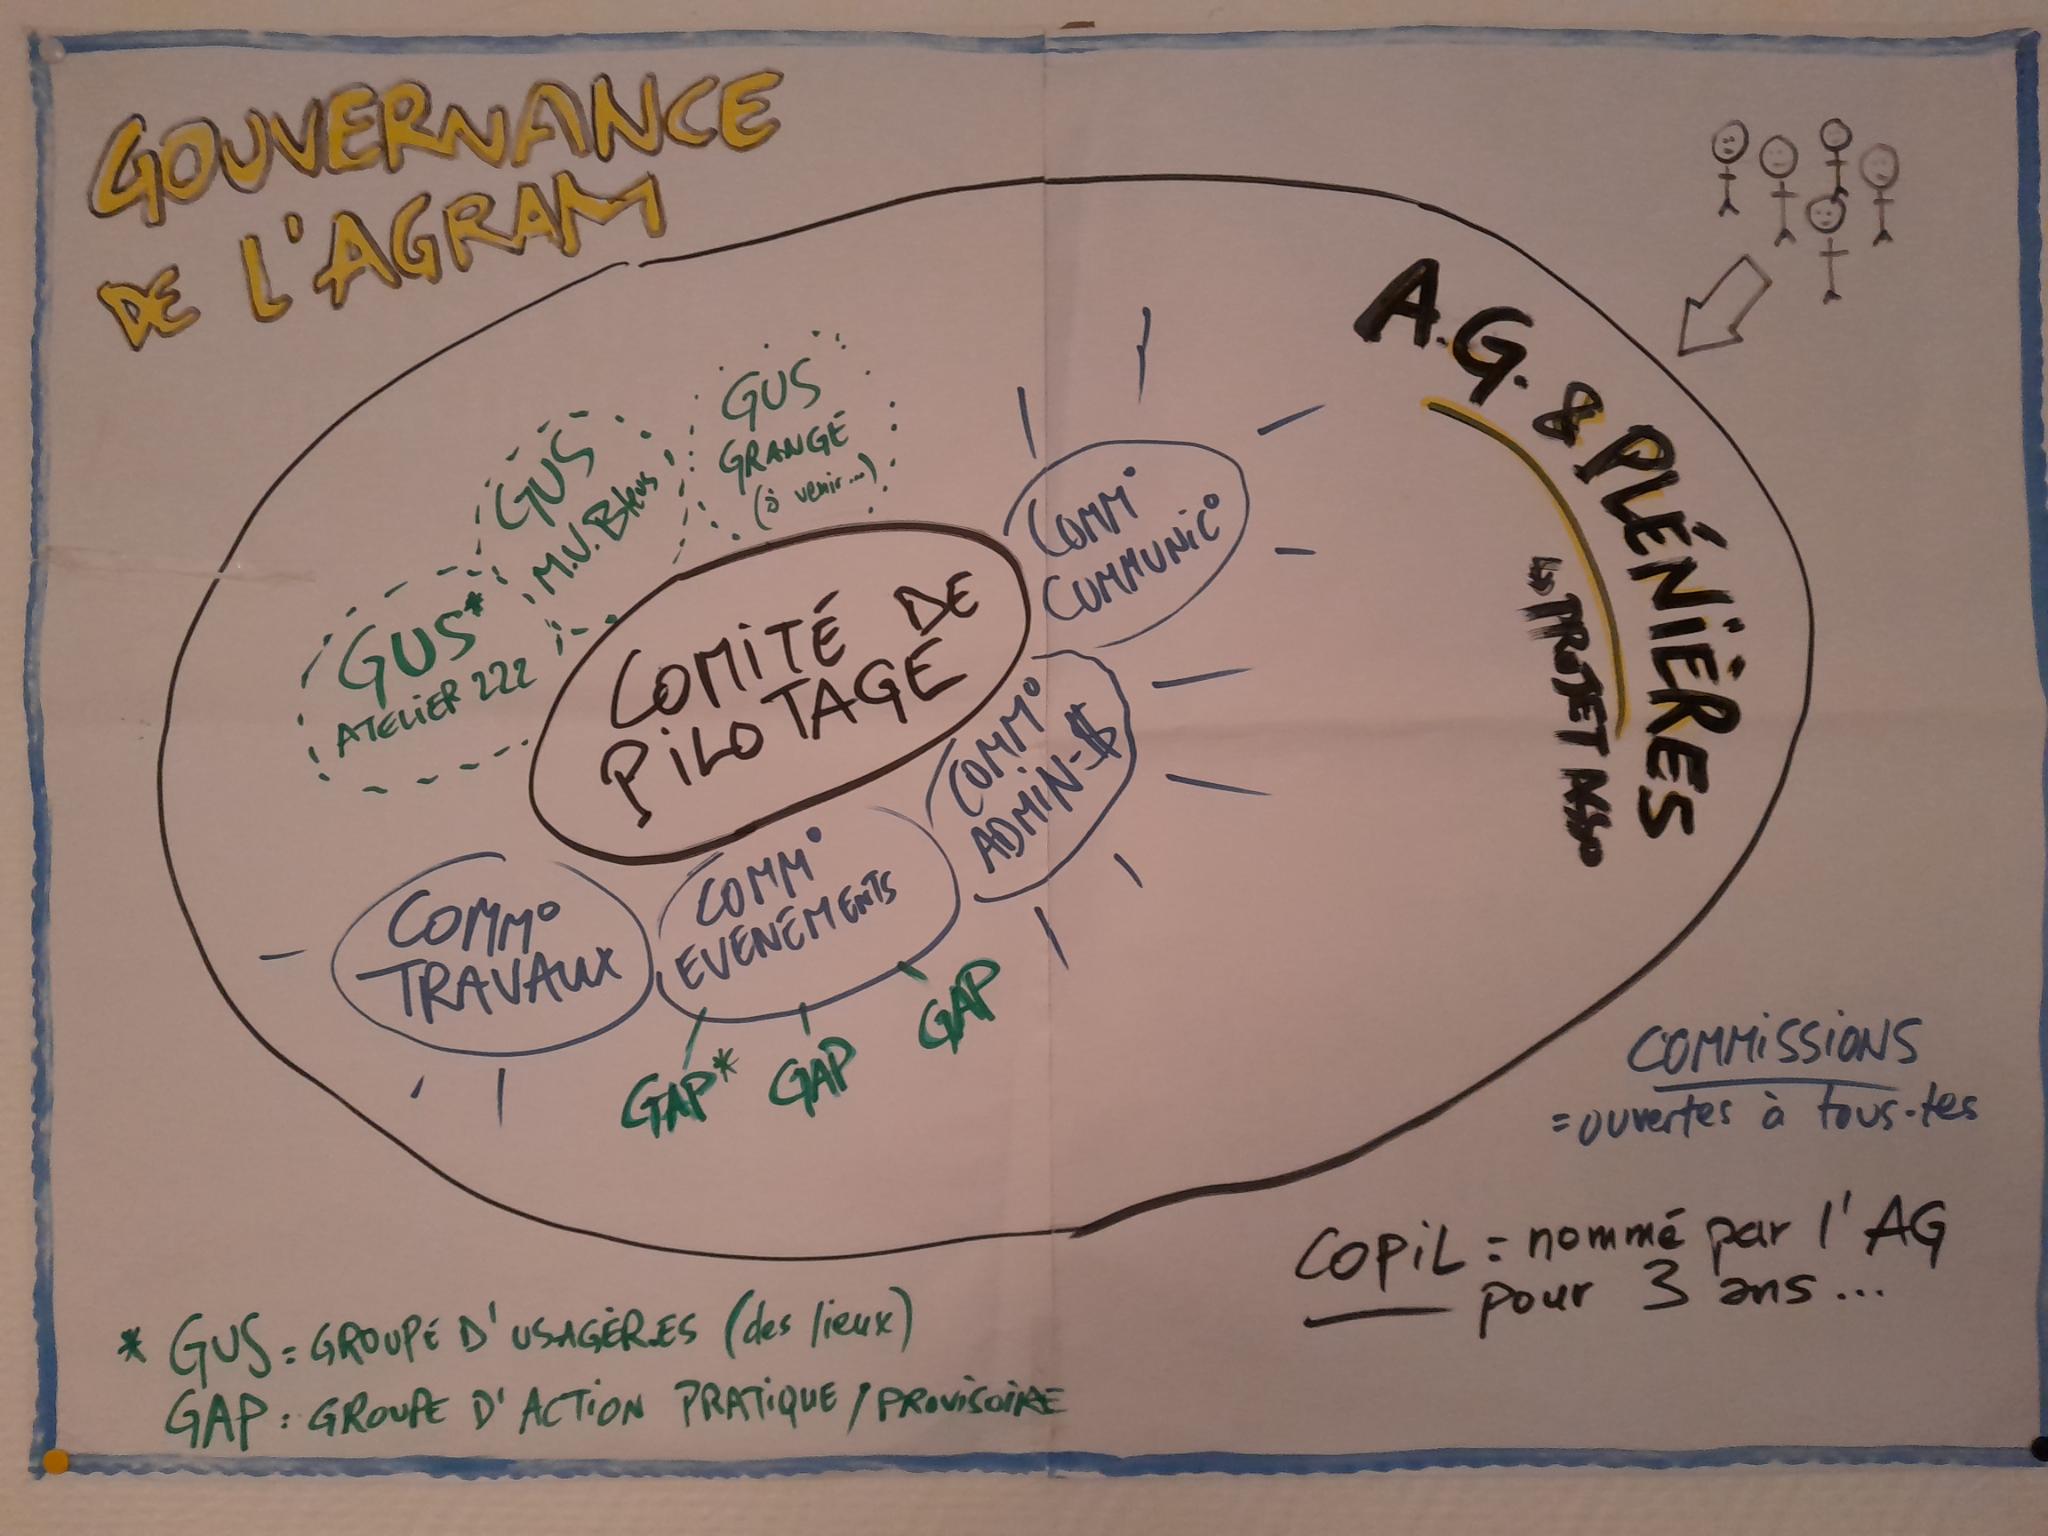 GOUVERNANCE
DE L'AGRAM
A.G. & PLÉNIÈRES
↳ PROJET ASSO
GUS
GRANGE
(à venir...)
GUS
M.V. Bleus
GUS*
ATELIER 222
COMITÉ DE
PILOTAGE
COMM°
COMMUNIC°
COMM°
ADMIN-$
COMM°
EVENEMENTS
COMM°
TRAVAUX
GAP*
GAP
GAP
COMMISSIONS
= ouvertes à tous·tes
COPIL = nommé par l'AG
pour 3 ans...
* GUS = GROUPE D'USAGÈR.ES (des lieux)
GAP : GROUPE D'ACTION PRATIQUE / PROVISOIRE